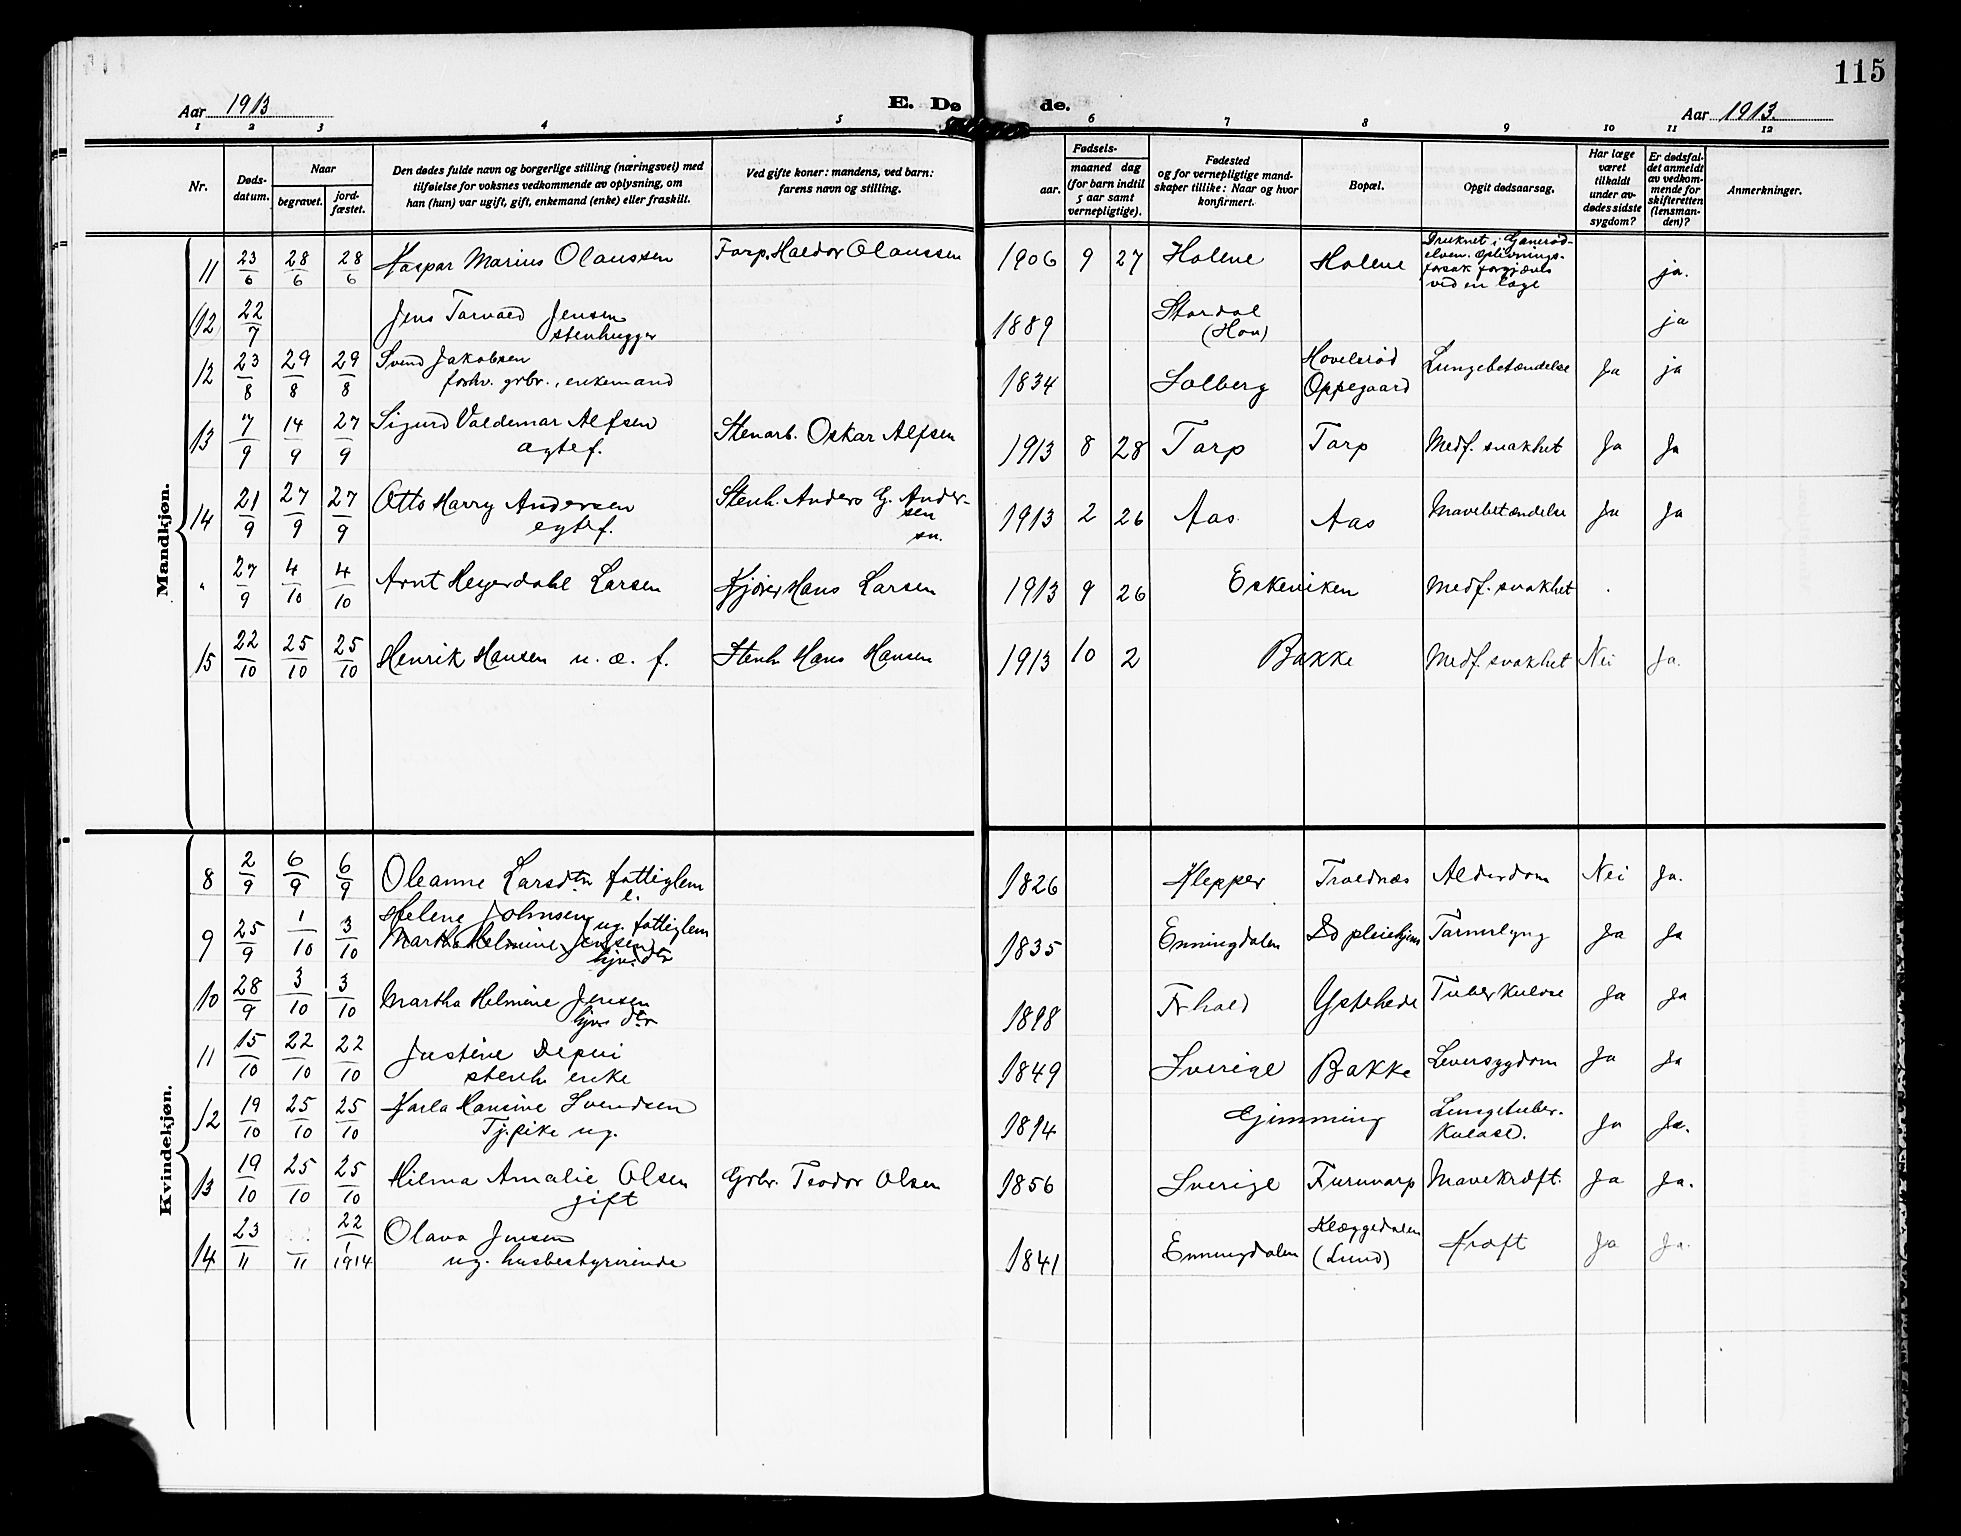 115
Aar 1913
E. Dø
de.
Aar 1913.
1 2 3 4 5 6 7 8 9 10 11 12
Nr.
Døds-
datum.
Naar
begravet.
jord-
fæstet.
Den dødes fulde navn og borgerlige stilling (næringsvei) med
tilføielse for voksnes vedkommende av oplysning, om
han (hun) var ugift, gift, enkemand (enke) eller fraskilt.
Ved gifte koner: mandens, ved barn:
farens navn og stilling.
Fødsels-
aar.
maaned dag
(for barn indtil
5 aar samt
vernepligtige).
Fødested
og for vernepligtige mand-
skaper tillike: Naar og hvor
konfirmert.
Bopæl.
Opgit dødsaarsag.
Har læge
været
tilkaldt
under av-
dødes sidste
sygdom?
Er dødsfal-
det anmeldt
av vedkom-
mende for
skifteretten
(lensman-
den)?
Anmerkninger.
Mandkjøn.
11 23/6 28/6 28/6 Kaspar Marius Olaussen Forp. Haldor Olaussen 1906 9 27 Holene Holene
Druknet i
elven. Oplivnings-
forsøk forgjæves
ved en læge
ja.
(12) 22/7 Jens Torvald Jensen
stenhugger
1889 Stordal
(Hov)
ja
12 23/8 29/8 29/8 Svend Jakobsen
forhv. grbr., enkemand
1834 Solberg Hovelsrød
Oppegaard
Lungebetændelse Ja ja
13 7/9 14/9 27/9 Sigurd Valdemar Alfsen
agtef.
Stenarb. Oskar Alfsen 1913 8 28 Torp Torp Medf. svakhet Ja Ja
14 21/9 27/9 27/9 Otto Harry Andersen
egtef.
Stenh. Anders G. Ander-
sen
sn.
1913 2 26 Aas Aas Mavebetændelse Ja Ja
" 27/9 4/10 4/10 Arnt Heyerdahl Larsen Kjører Hans Larsen 1913 9 26 Eskeviken Medf. svakhet
15 22/10 25/10 25/10 Henrik Hansen u. æ. f. Stenh. Hans Hansen 1913 10 2 Bakke Medf. svakhet Nei Ja.
Kvindekjøn.
8 2/9 6/9 6/9 Oleanne Larsdtn fattiglem
e.
1826 Klepper Troldnæs Alderdom Nei Ja.
9 25/9 1/10 3/10 Helene Johnsen ug. fattiglem
Martha Helmine Jensen
1835 Enningdalen pleiehjem Tarmslyng Ja Ja
10 28/9 3/10 3/10 Martha Helmine Jensen
1898 Fr.hald Ystehede Tuberkulose Ja Ja
11 15/10 22/10 22/10 Justine Depui
stenh. enke
1849 Sverige Bakke Leversygdom Ja Ja
12 19/10 25/10 25/10 Karla Hansine Svendsen
Tj.pike ug.
1894 Gjimming Lungetuber-
kulose.
Ja Ja.
13 19/10 25/10 25/10 Hilma Amalie Olsen
gift
Grbr. Teodor Olsen 1856 Sverige Furuvarp Mavekræft. Ja Ja.
14 23/11 /11 22/1
1914
Olava Jensen
ug. husbestyrerinde
1841 Enningdalen Klæggedalen
(Lund)
Kræft Ja Ja.